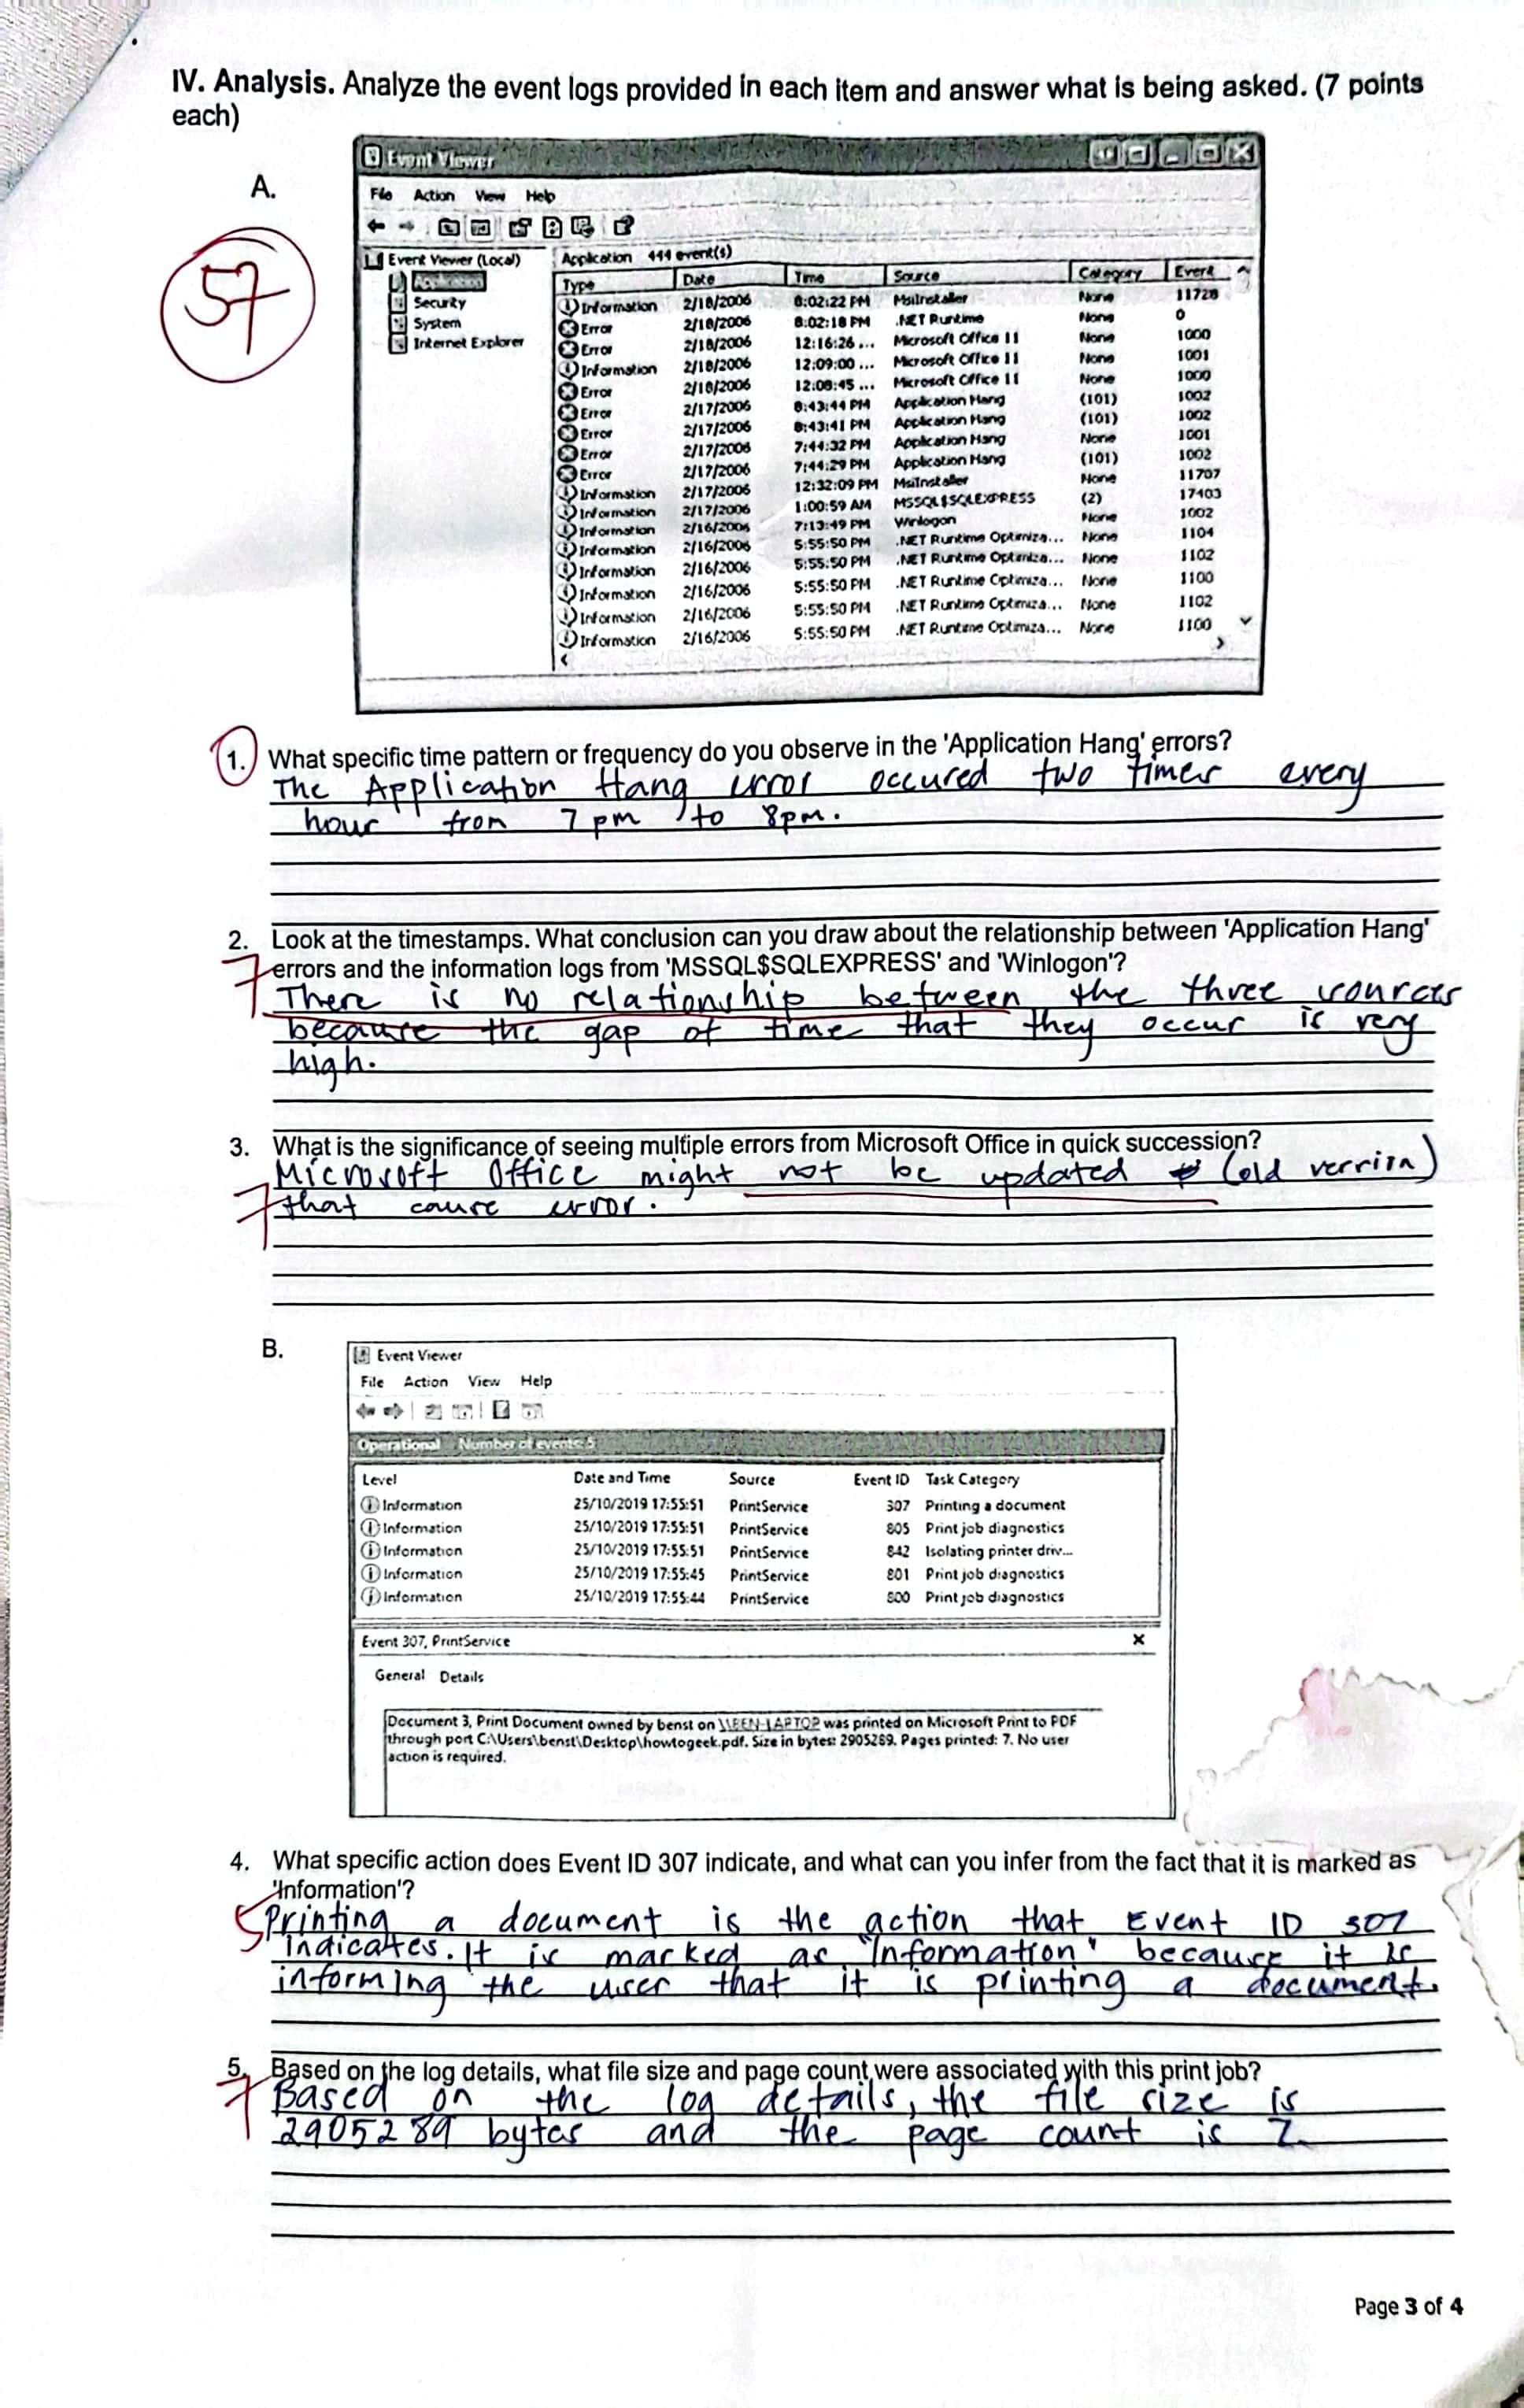 IV. Analysis. Analyze the event logs provided in each item and answer what is being asked. (7 points
each)
A.
57
Event Viewer
File Action View Help
Event Viewer (Local)
Security
System
Internet Explorer
Application 444 event(s)
Type Date Time Source Category Event
Information 2/18/2006 8:02:22 PM MsiInstaller None 11728
Error 2/18/2006 8:02:18 PM .NET Runtime None 0
Error 2/18/2006 12:16:26 ... Microsoft Office 11 None 1000
Information 2/18/2006 12:09:00 ... Microsoft Office 11 None 1001
Error 2/18/2006 12:08:45 ... Microsoft Office 11 None 1000
Error 2/17/2006 8:43:44 PM Application Hang (101) 1002
Error 2/17/2006 8:43:41 PM Application Hang (101) 1002
Error 2/17/2006 7:44:32 PM Application Hang None 1001
Error 2/17/2006 7:44:29 PM Application Hang (101) 1002
Information 2/17/2006 12:32:09 PM MsiInstaller None 11707
Information 2/17/2006 1:00:59 AM MSSQL$SQLEXPRESS (2) 17403
Information 2/16/2006 7:13:49 PM Winlogon None 1002
Information 2/16/2006 5:55:50 PM .NET Runtime Optimiza... None 1104
Information 2/16/2006 5:55:50 PM .NET Runtime Optimiza... None 1102
Information 2/16/2006 5:55:50 PM .NET Runtime Optimiza... None 1100
Information 2/16/2006 5:55:50 PM .NET Runtime Optimiza... None 1102
Information 2/16/2006 5:55:50 PM .NET Runtime Optimiza... None 1100
1. What specific time pattern or frequency do you observe in the 'Application Hang' errors?
The Application Hang error occured two times every
hour from 7 pm to 8pm.
2. Look at the timestamps. What conclusion can you draw about the relationship between 'Application Hang'
7 errors and the information logs from 'MSSQL$SQLEXPRESS' and 'Winlogon'?
There is no relationship between the three sources
because the gap of time that they occur is very
high.
3. What is the significance of seeing multiple errors from Microsoft Office in quick succession?
Microsoft Office might not be updated (old version)
7 that cause error.
B.
Event Viewer
File Action View Help
Operational Number of events: 5
Level Date and Time Source Event ID Task Category
Information 25/10/2019 17:55:51 PrintService 307 Printing a document
Information 25/10/2019 17:55:51 PrintService 805 Print job diagnostics
Information 25/10/2019 17:55:51 PrintService 842 Isolating printer driv...
Information 25/10/2019 17:55:45 PrintService 801 Print job diagnostics
Information 25/10/2019 17:55:44 PrintService 800 Print job diagnostics
Event 307, PrintService
General Details
Document 3, Print Document owned by benst on was printed on Microsoft Print to PDF
through port C:\Users\benst\Desktop\howtogeek.pdf. Size in bytes: 2905289. Pages printed: 7. No user
action is required.
4. What specific action does Event ID 307 indicate, and what can you infer from the fact that it is marked as
'Information'?
5 Printing a document is the action that Event ID 307
indicates. It is marked as "Information" because it is
informing the user that it is printing a document.
5. Based on the log details, what file size and page count were associated with this print job?
7 Based on the log details, the file size is
2905289 bytes and the page count is 7.
Page 3 of 4